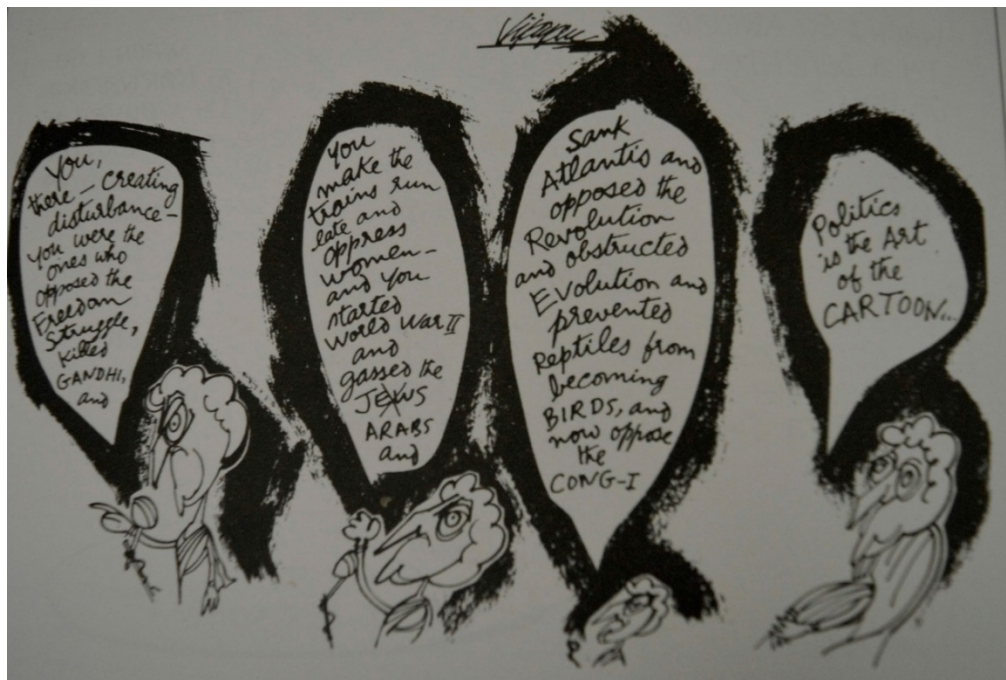 Vijayan
You,
there – creating
disturbance –
you were the
ones who
opposed the
Freedom
Struggle,
killed
GANDHI,
and
You
make the
trains run
late and
oppress
women –
and you
started
World War II
and
gassed the
JEWS
ARABS
and
Sank
Atlantis and
opposed the
Revolution
and obstructed
Evolution and
prevented
Reptiles from
becoming
BIRDS, and
now oppose
the
CONG-I
Politics
is the Art
of the
CARTOON...